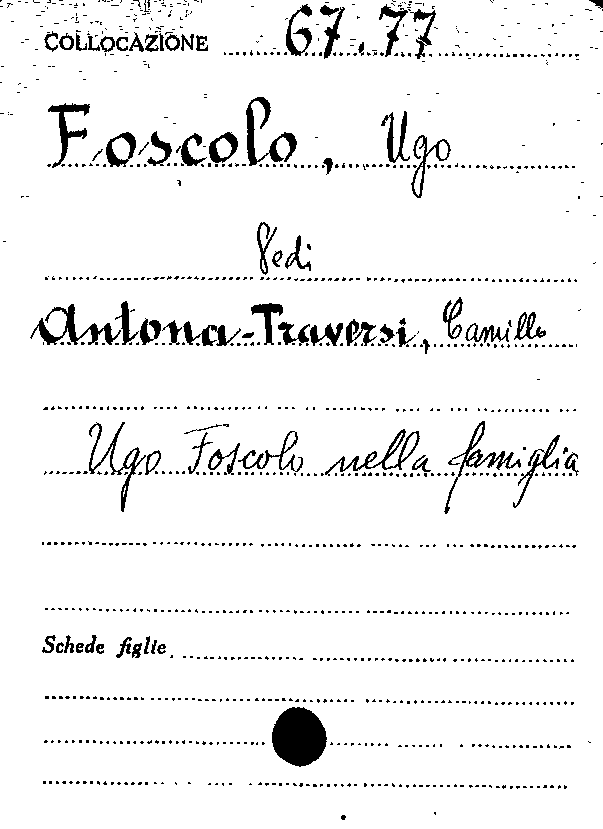 COLLOCAZIONE 67.77
Foscolo, Ugo
Vedi
Antona-Traversi, Camillo
Ugo Foscolo nella famiglia
Schede figlie